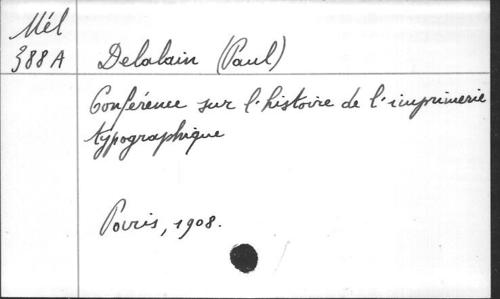 Mél
388 A
Delalain (Paul)
Conférence sur l'histoire de l'imprimerie
typographique
Paris, 1908.